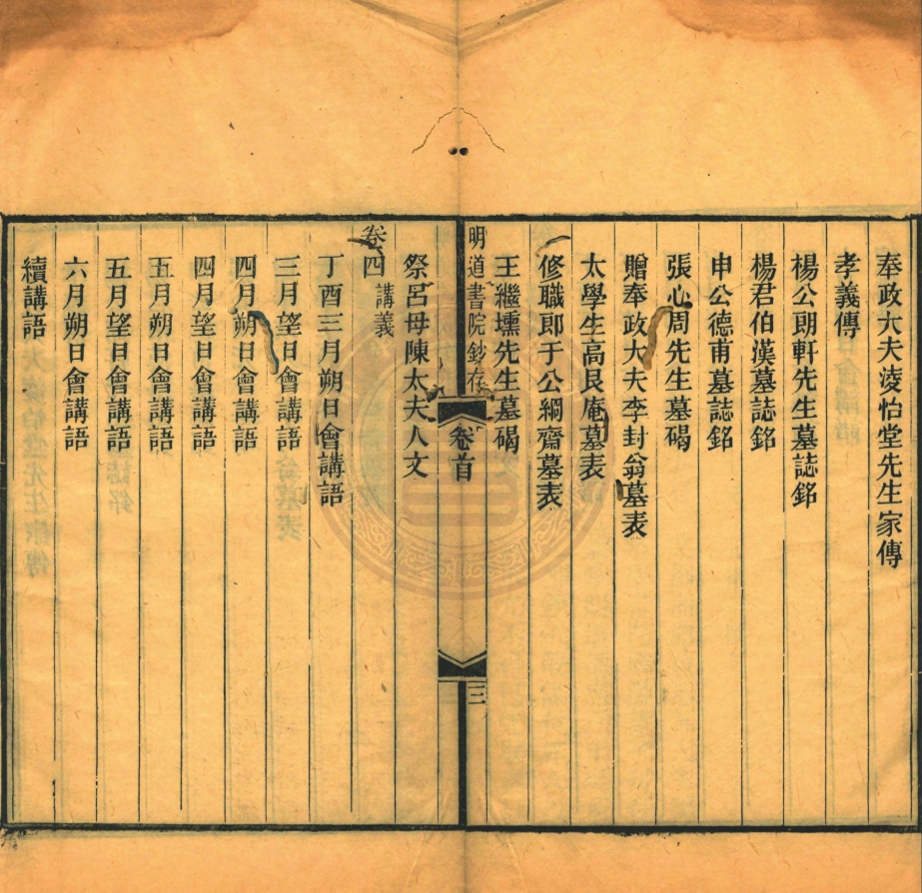 奉政大夫淩怡堂先生家傳
孝義傳
楊公朗軒先生墓誌銘
楊君伯漢墓誌銘
申公德甫墓誌銘
張心周先生墓碣
贈奉政大夫李封翁墓表
太學生高艮庵墓表
修職郎于公綱齋墓表
王繼壎先生墓碣
明道書院鈔存
卷首
三
祭呂母陳太夫人文
卷四 講義
丁酉三月朔日會講語
三月望日會講語
四月朔日會講語
四月望日會講語
五月朔日會講語
五月望日會講語
六月朔日會講語
續講語